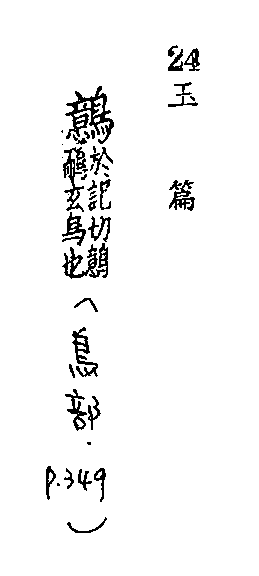 24 玉篇
鷾 於記切鷾
鴯玄鳥也
(鳥部.p.349)